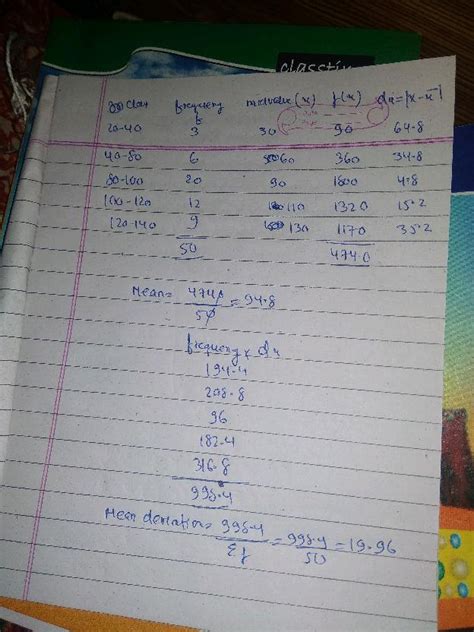 classtim
Class frequency midvalue (x) f(x) dx=|x-x̄|
f
20-40 3 30 90 64.8
40-80 6 60 360 34.8
80-100 20 90 1800 4.8
100-120 12 110 1320 15.2
120-140 9 130 1170 35.2
50 4740
Mean = 4740 = 94.8
50
frequency x dx
194.4
208.8
96
182.4
316.8
998.4
Mean deviation = 998.4 = 998.4 = 19.96
Σf 50